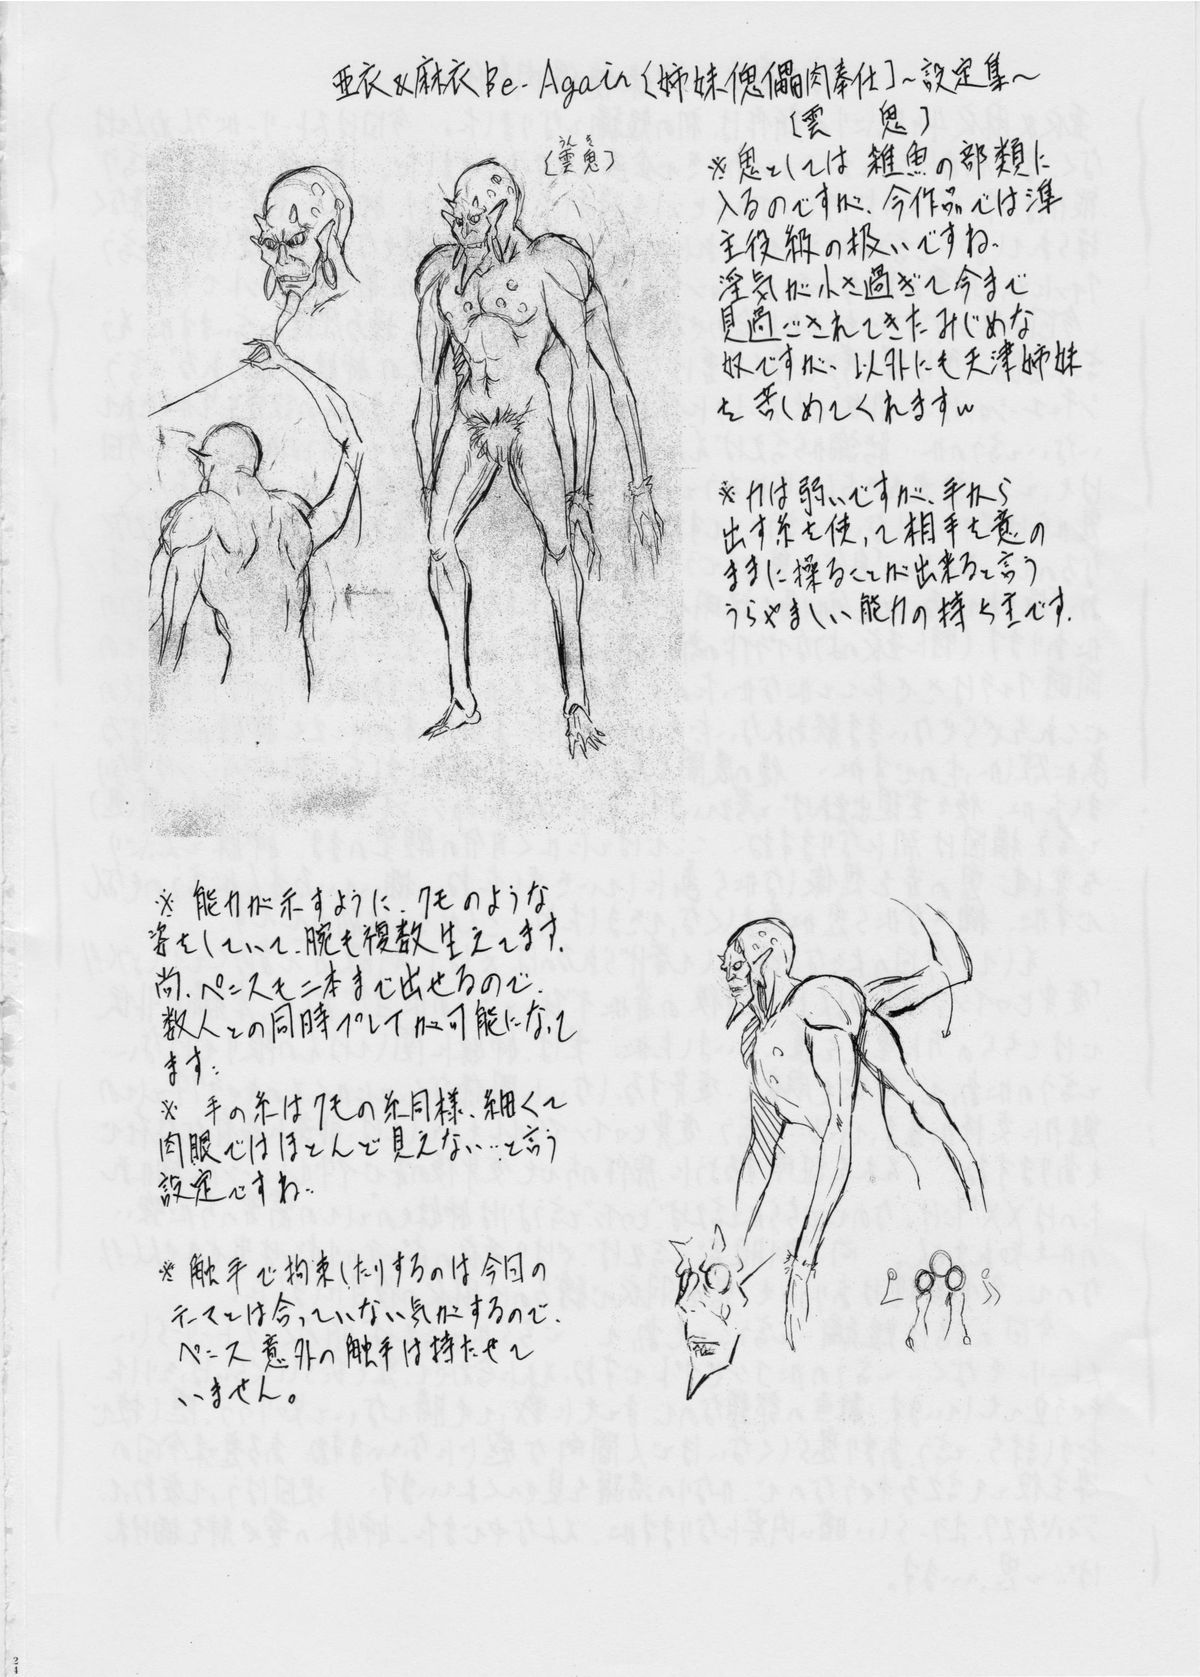 亜衣&麻衣Be-Again〔姉妹傀儡肉奉仕〕~設定集~
〔雲 鬼〕
(雲鬼)
※鬼としては 雑魚の部類に
入るのですが、今作品では準
主役級の扱いですね。
淫気が小さ過ぎて今まで
見過ごされてきたみじめな
奴ですが、以外にも天津姉妹
を苦しめてくれますw
※力は弱いですが、手から
出す糸を使って相手を意の
ままに操ることが出来ると言う
うらやましい能力の持ち主です.
※ 能力が示すように、クモのような
姿をしていて、腕も複数生えてます.
尚、ペニスも二本まで出せるので、
数人との同時プレイが可能になって
ます.
※ 手の糸はクモの糸同様、細くて
肉眼ではほとんど見えない…と言う
設定ですね..
※ 触手で拘束したりするのは今回の
テーマとは合っていない気がするので、
ペニス意外の触手は持たせて
いません。
24